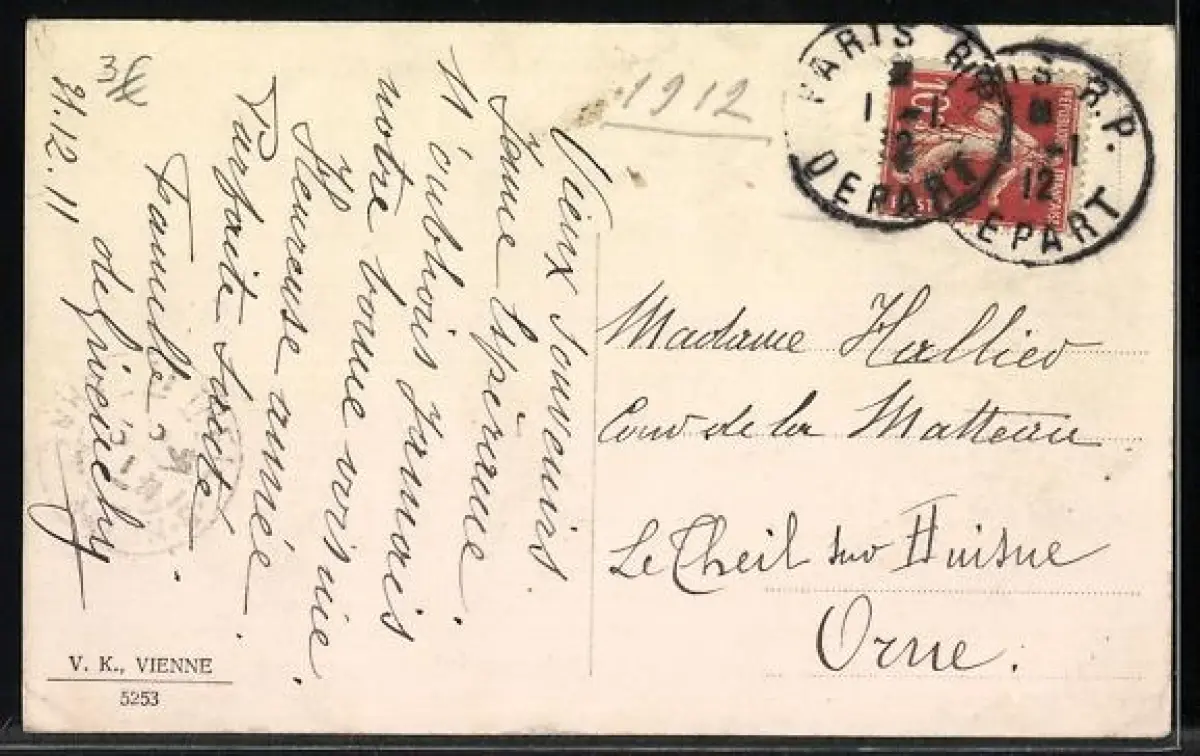 1912
PARIS R.P.
1 -1
12
DEPART
PARIS R.P.
-1
12
DEPART
10
REPUBLIQUE FRANÇAISE
POSTES
Vieux Souvenirs
Jeune Espérance
N'oublions jamais
notre bonne voisine.
Heureuse année.
Parfaite santé
Famille
31.12.11
Madame Hallier
Cour de la Matteau
Le Theil sur Huisne
Orne.
V. K., VIENNE
5253